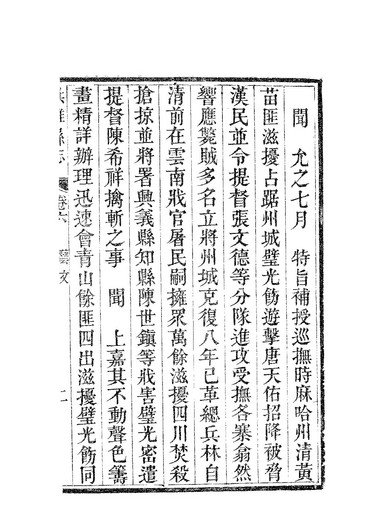 聞　允之七月　特旨補授巡撫時麻哈州清黃
苗匪滋擾占踞州城璧光飭遊擊唐天佑招降被脅
漢民並令提督張文德等分隊進攻受撫各寨翕然
響應斃賊多名立將州城克復八年已革總兵林自
清前在雲南戕官屠民嗣擁眾萬餘滋擾四川焚殺
搶掠並將署興義縣知縣陳世鎮等戕害璧光密遣
提督陳希祥擒斬之事　聞　上嘉其不動聲色籌
畫精詳辦理迅速會青山餘匪四出滋擾璧光飭同
雄縣志　卷六　藝文　二